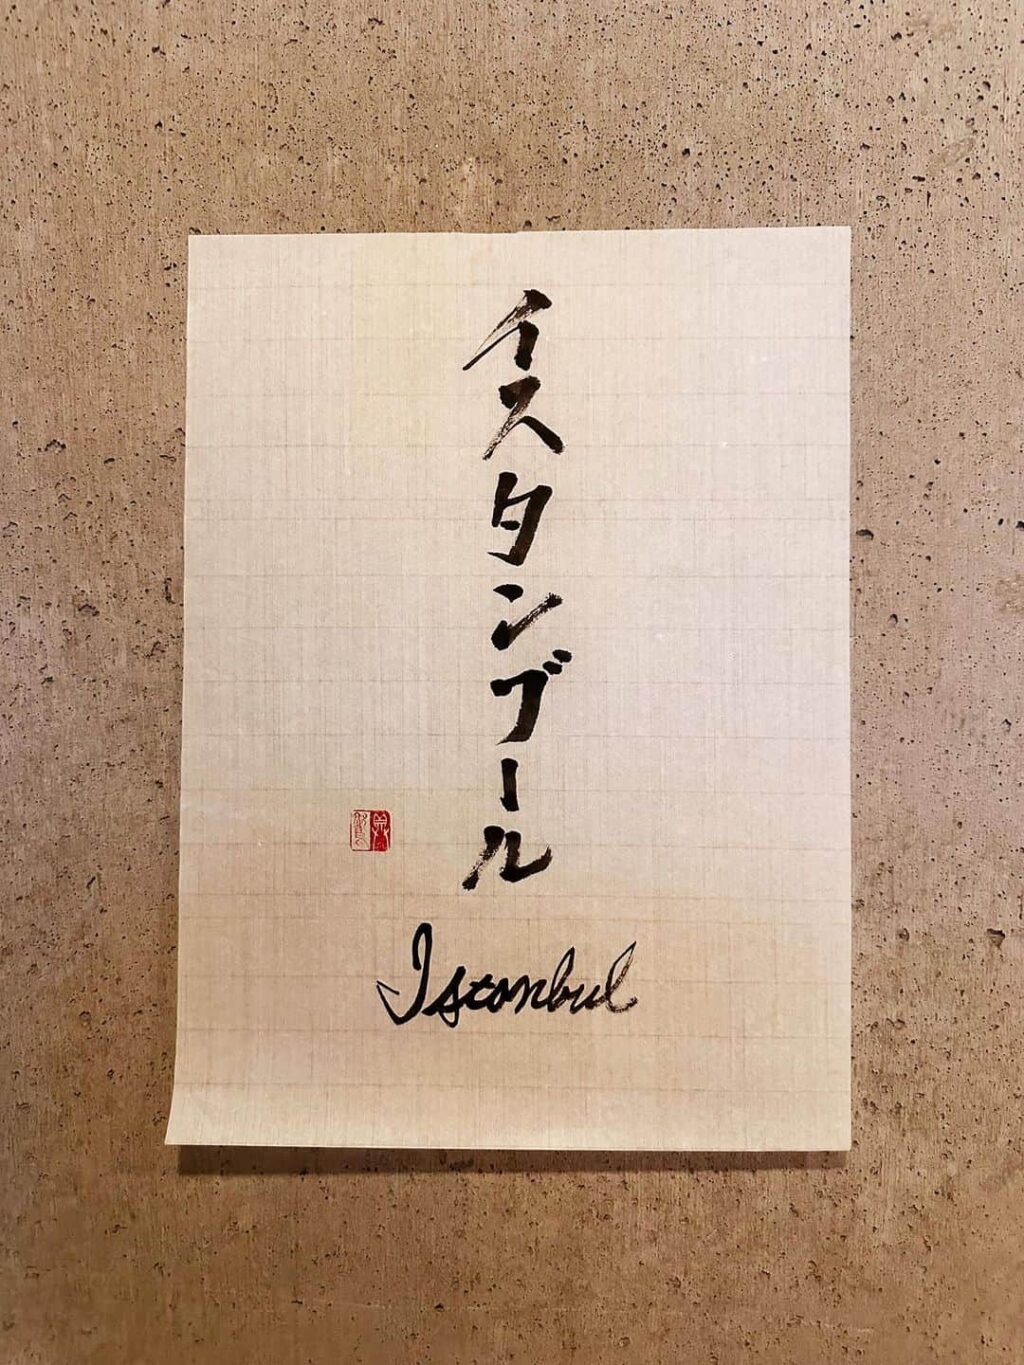 イスタンブール
Istanbul